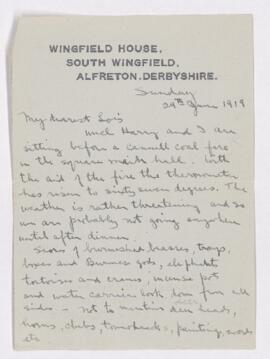 WINGFIELD HOUSE,
SOUTH WINGFIELD,
ALFRETON. DERBYSHIRE.
Sunday
29th June 1919
My dearest Lois
Uncle Harry and I are
sitting before a cannell coal fire
in the square hall. With
the aid of the fire the thermometer
has risen to sixty seven degrees. The
weather is rather threatening and so
we are probably not going anywhere
until after dinner.
of burnished brasses, trays,
boxes and Burmese gods, elephants
tortoises and pots
and water carriers look down from all
sides – not to mention deer heads,
horns, clubs, tomahawks, painting, swords
etc